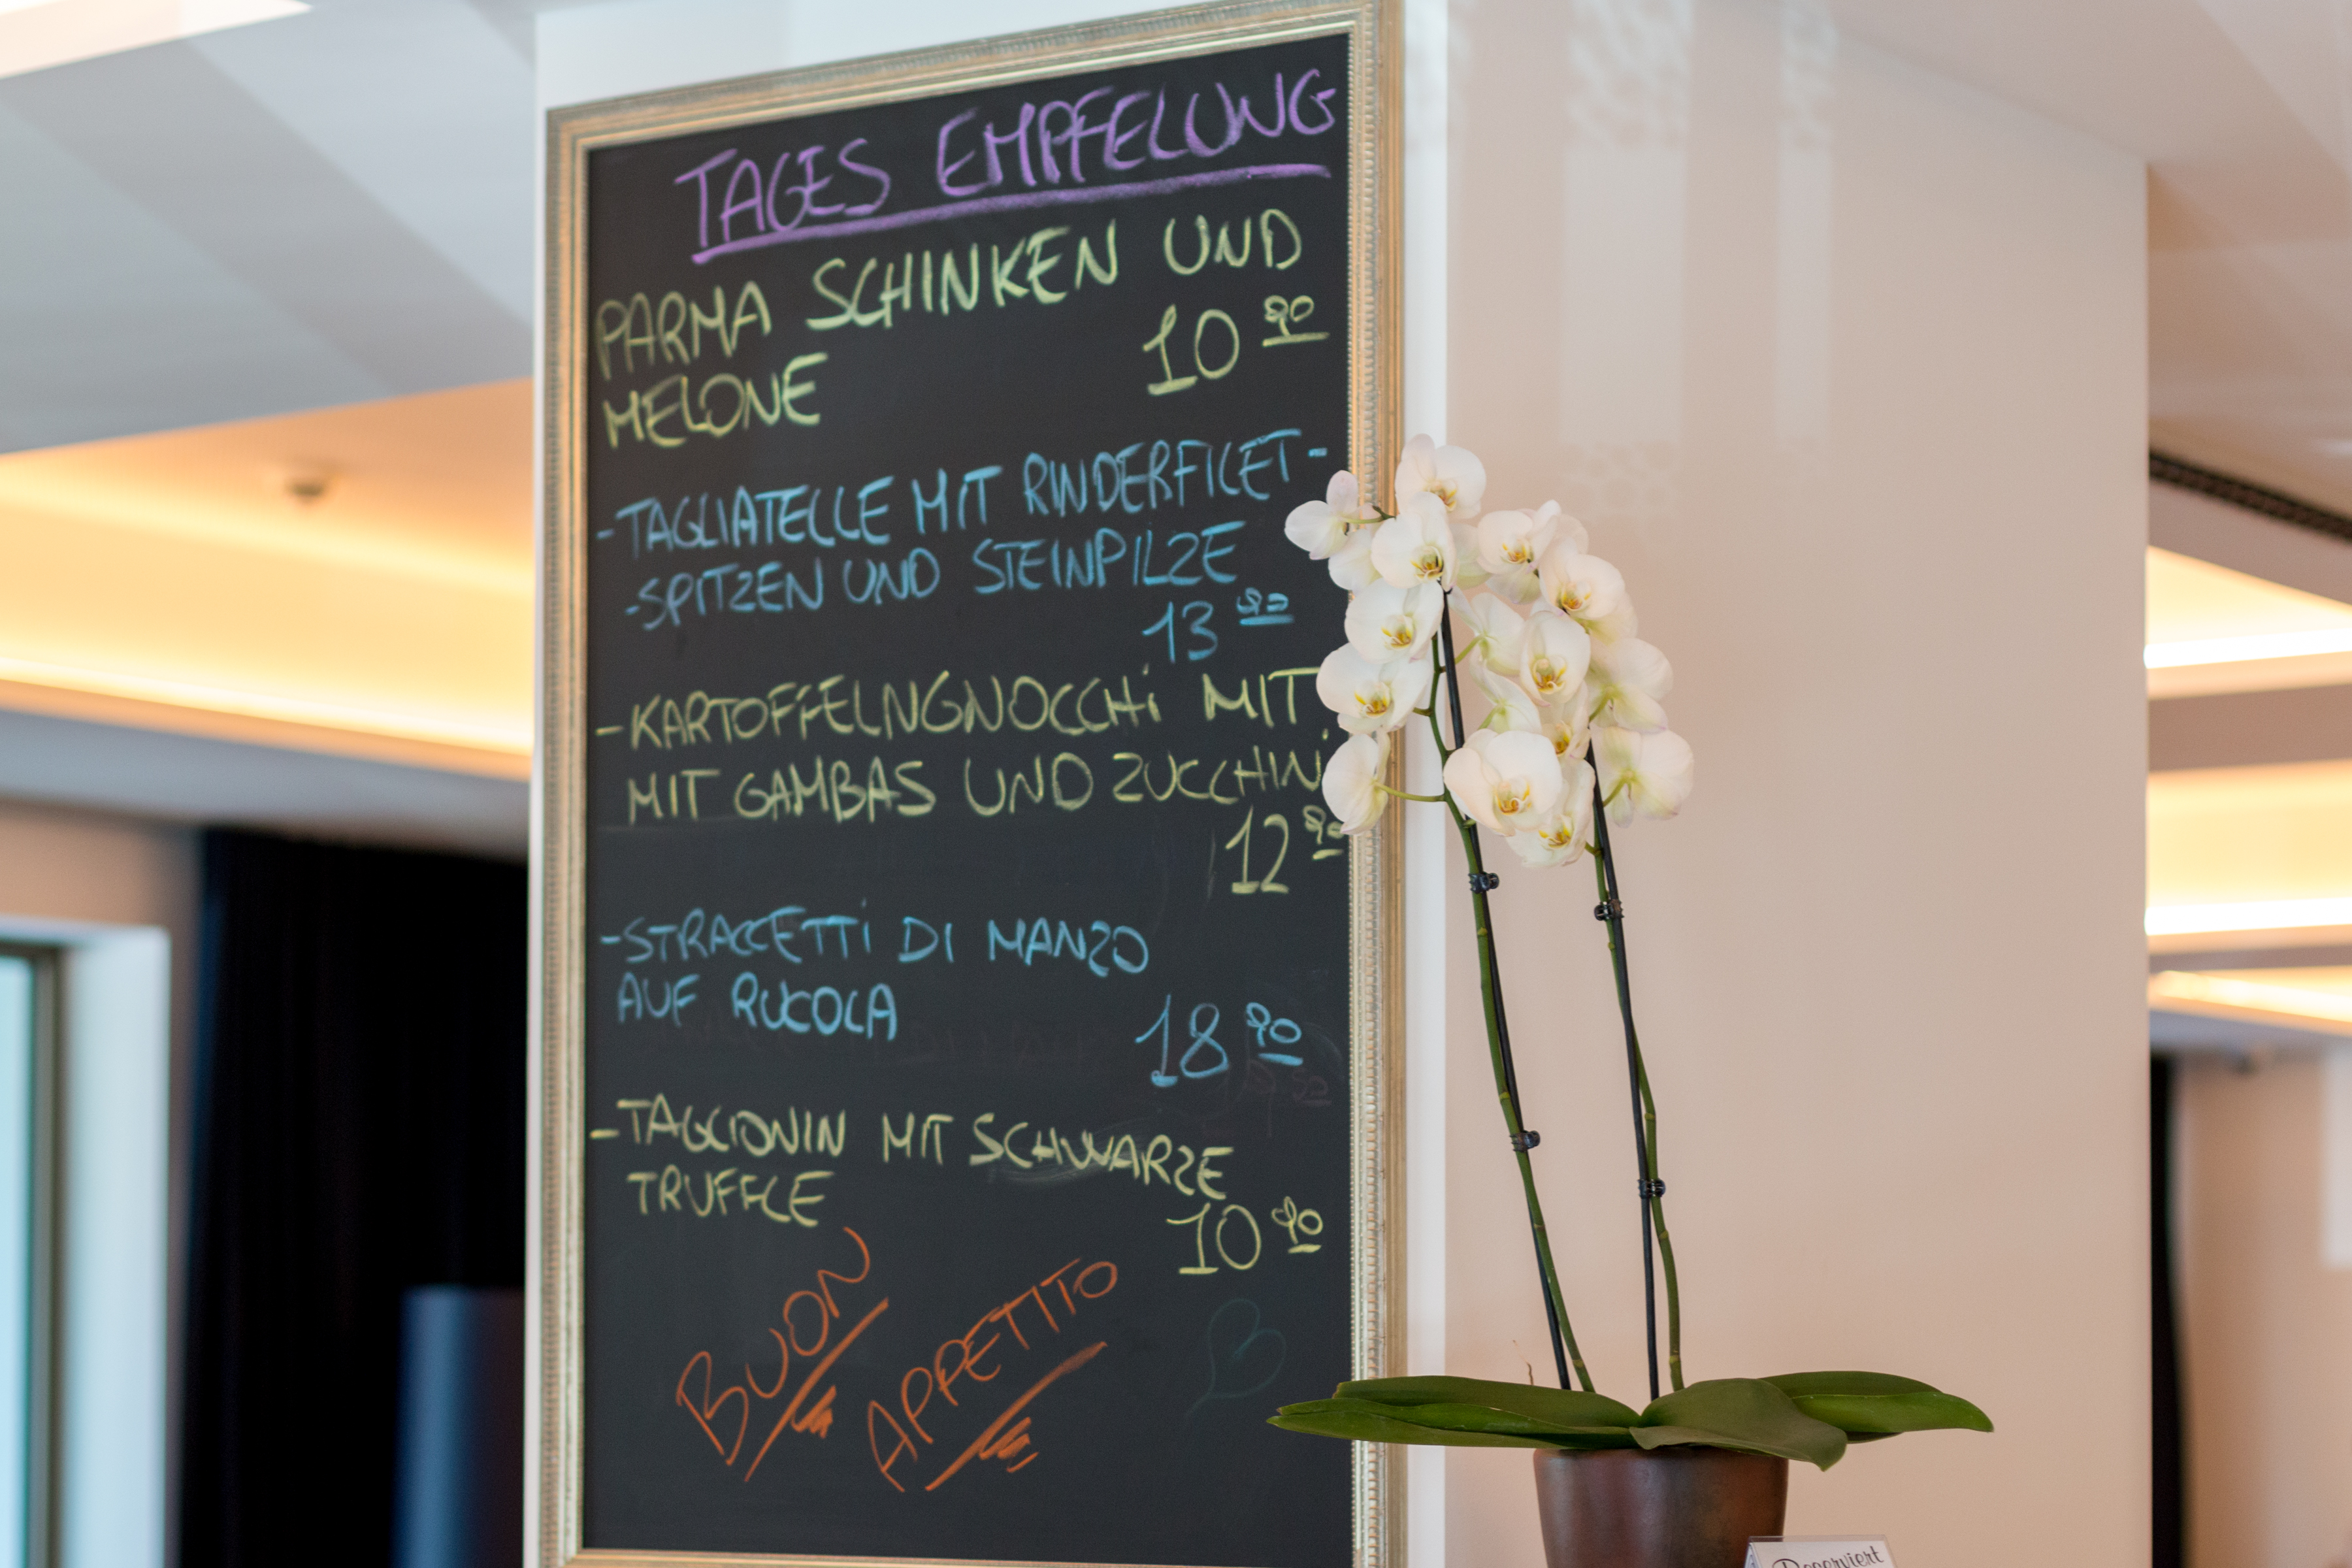 TAGES EMPFELUNG
PARMA SCHINKEN UND
MELONE 10 90
-TAGLIATELLE MIT RINDERFILET-
-SPITZEN UND STEINPILZE
13 90
-KARTOFFELNGNOCCHi MIT
MIT GAMBAS UND ZUCCHINi
12 90
-STRACCETTi DI MANZO
AUF RUCOLA
18 90
-TAGLIONIN MIT SCHWARZE
TRUFFLE
10 90
BUON
APPETITO
Reserviert